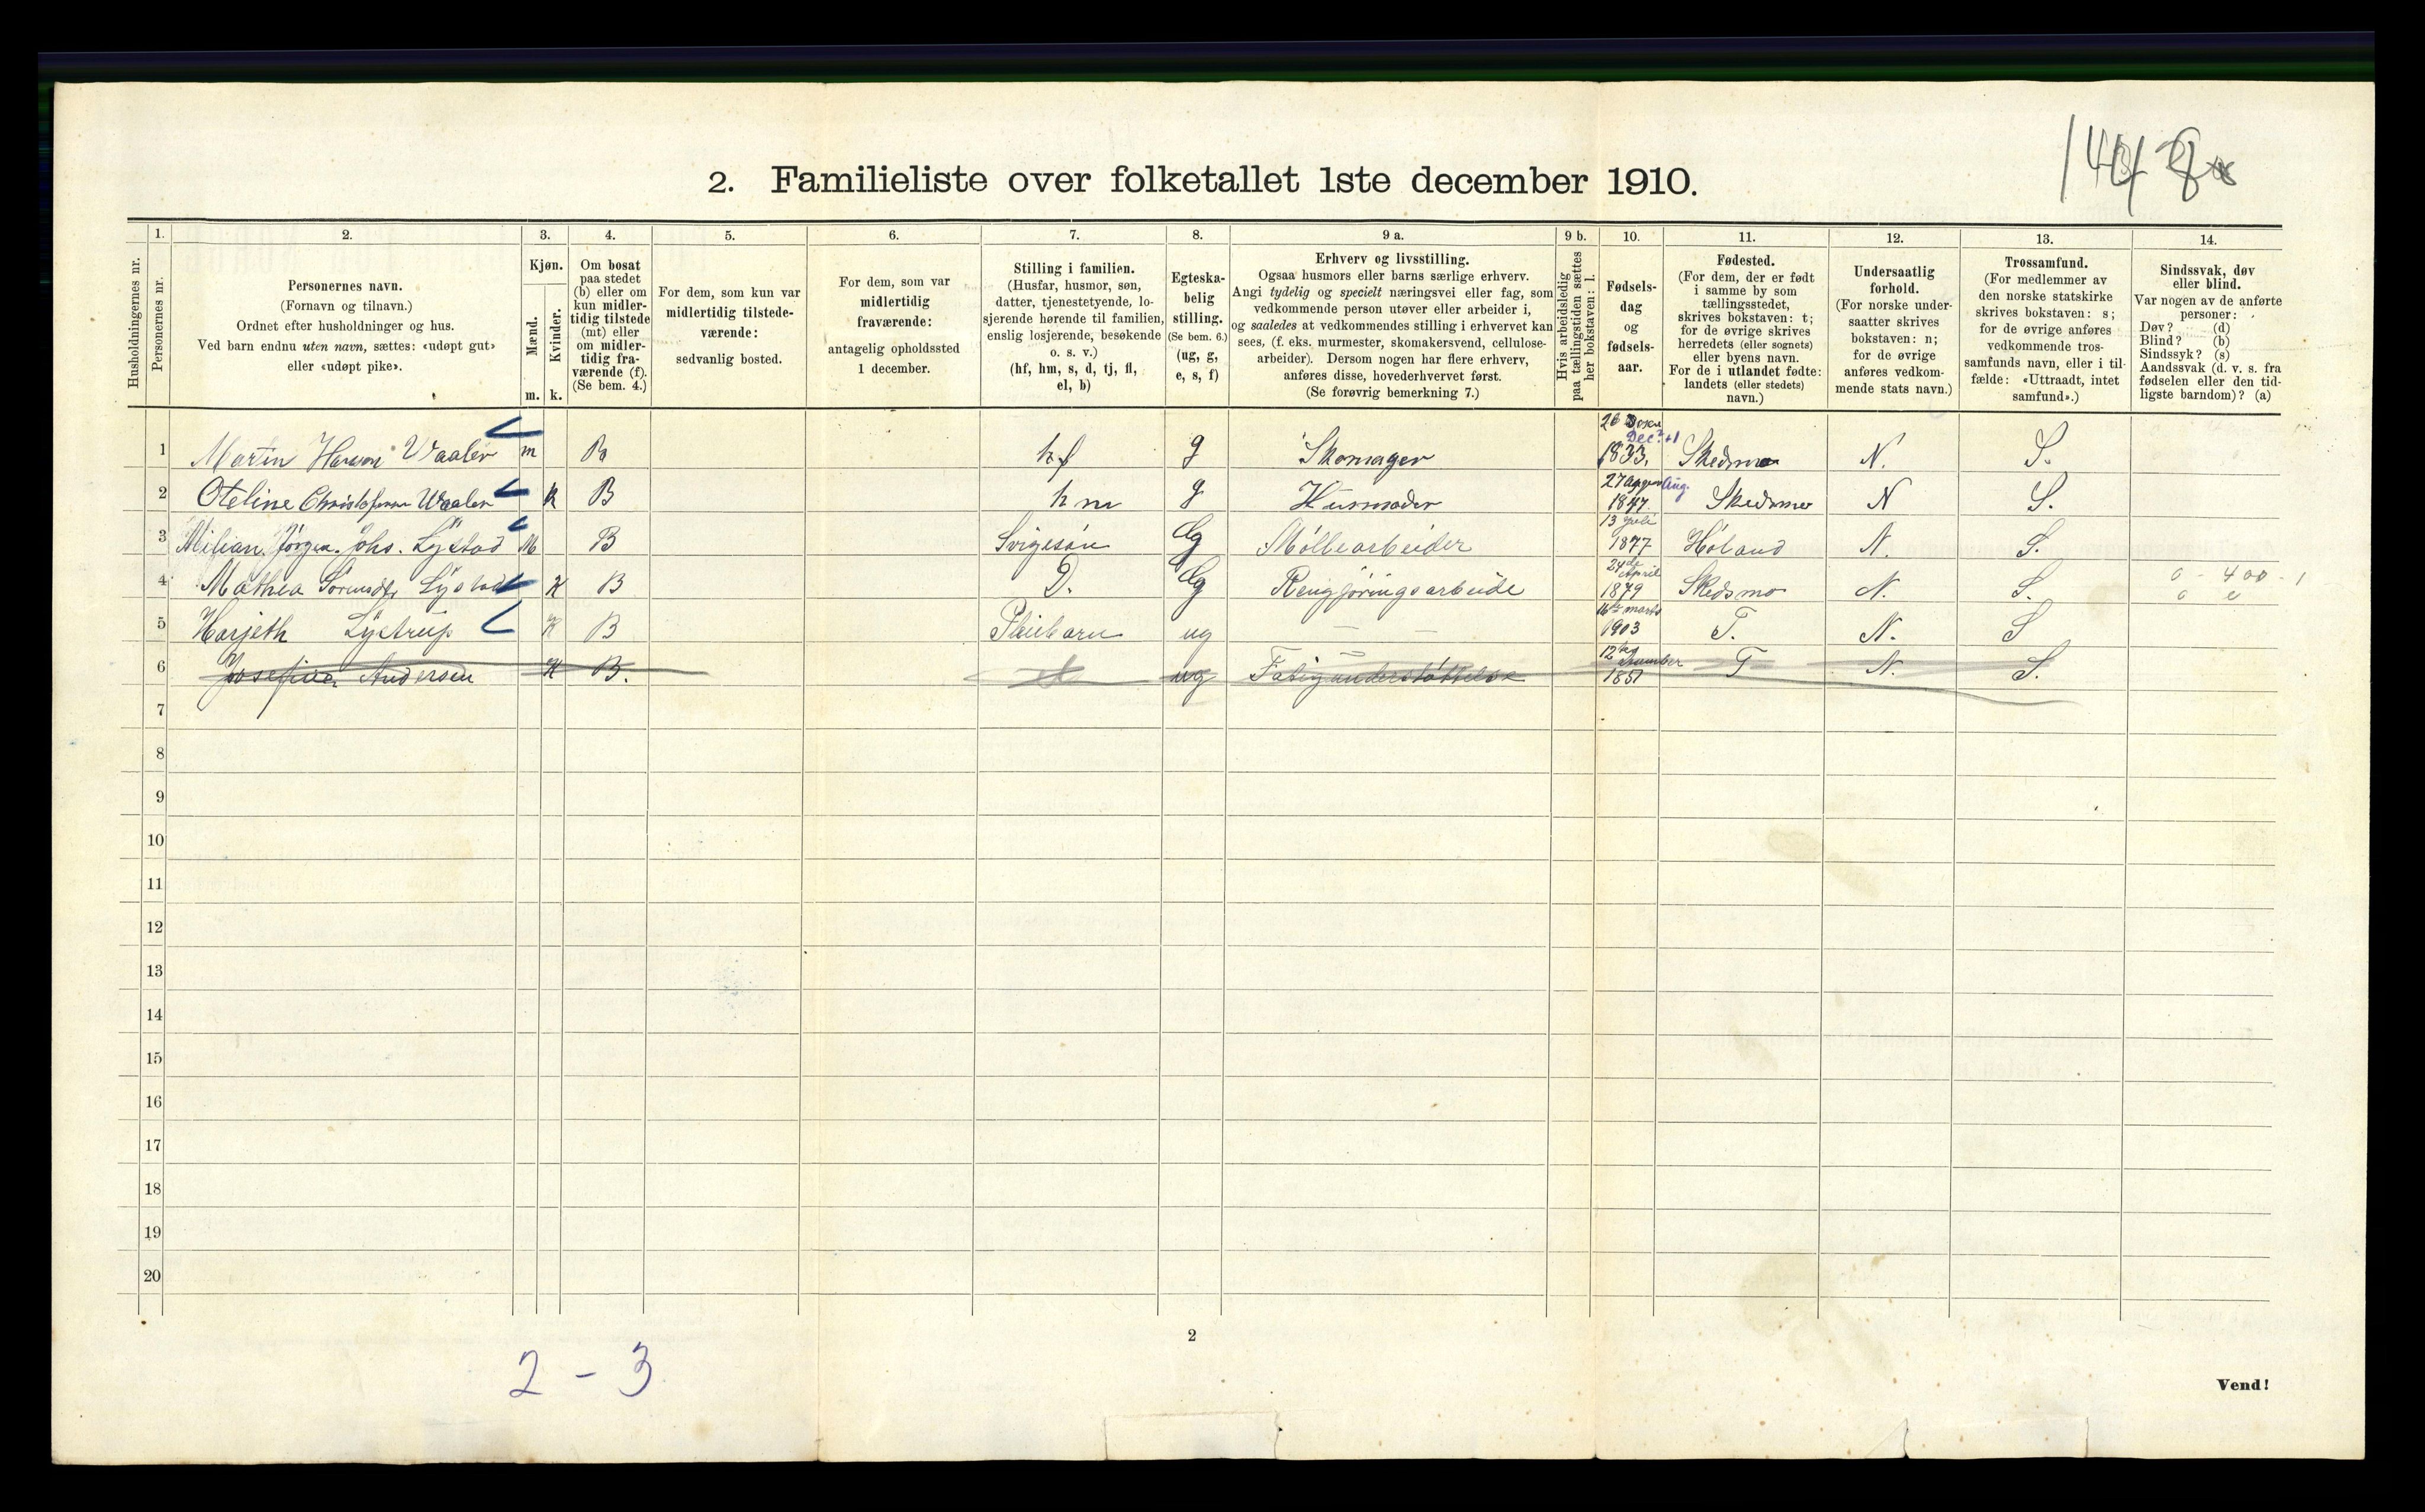 2. Familieliste over folketallet 1ste december 1910.
1. 2. 3. 4. 5. 6. 7. 8. 9 a. 9 b. 10. 11. 12. 13. 14.
Husholdningernes nr.
Personernes nr.
Personernes navn.
(Fornavn og tilnavn.)
Ordnet efter husholdninger og hus.
Ved barn endnu uten navn, sættes: «udøpt gut»
eller «udøpt pike».
Kjøn.
Mænd.
Kvinder.
m. k.
Om bosat
paa stedet
(b) eller om
kun midler-
tidig tilstede
(mt) eller
om midler-
tidig fra-
værende (f).
(Se bem. 4.)
For dem, som kun var
midlertidig tilstede-
værende:
sedvanlig bosted.
For dem, som var
midlertidig
fraværende:
antagelig opholdssted
1 december.
Stilling i familien.
(Husfar, husmor, søn,
datter, tjenestetyende, lo-
sjerende hørende til familien,
enslig losjerende, besøkende
o. s. v.)
(hf, hm, s, d, tj, fl,
el, b)
Egteska-
belig
stilling.
(Se bem. 6.)
(ug, g,
e, s, f)
Erhverv og livsstilling.
Ogsaa husmors eller barns særlige erhverv.
Angi tydelig og specielt næringsvei eller fag, som
vedkommende person utøver eller arbeider i,
og saaledes at vedkommendes stilling i erhvervet kan
sees, (f. eks. murmester, skomakersvend, cellulose-
arbeider). Dersom nogen har flere erhverv,
anføres disse, hovederhvervet først.
(Se forøvrig bemerkning 7.)
Hvis arbeidsledig
paa tællingstiden sættes
her bokstaven: l.
Fødsels-
dag
og
fødsels-
aar.
Fødested.
(For dem, der er født
i samme by som
tællingsstedet,
skrives bokstaven: t;
for de øvrige skrives
herredets (eller sognets)
eller byens navn.
For de i utlandet fødte:
landets (eller stedets)
navn.)
Undersaatlig
forhold.
(For norske under-
saatter skrives
bokstaven: n;
for de øvrige
anføres vedkom-
mende stats navn.)
Trossamfund.
(For medlemmer av
den norske statskirke
skrives bokstaven: s;
for de øvrige anføres
vedkommende tros-
samfunds navn, eller i til-
fælde: «Uttraadt, intet
samfund».)
Sindssvak, døv
eller blind.
Var nogen av de anførte
personer:
Døv? (d)
Blind? (b)
Sindssyk? (s)
Aandssvak (d. v. s. fra
fødselen eller den tid-
ligste barndom)? (a)
1 Martin Hanson Waaler m B hf g Skomager 26 Dec. 1833. Skedsmo N. S.
2 Oteline Waaler k B hm g Husmoder 27 Aug. 1847. Skedsmo N S.
3 Milian. Jörgen. Johs. Lystad M B Svigesön G Möllearbeider 13 Juli 1877 Höland N. S.
4 Mathea Lystad K B D. G Rengjöringsarbeide 24de April 1879 Skedsmo N. S. 0 - 400 - 1
5 Harjeth Lystrup K B Pleiebarn ug — — 16de marts 1903 T. N. S
6 Josefine Andersen K B. ug Fatigunderstöttelse 12te 1851 T N. S.
7
8
9
10
11
12
13
14
15
16
17
18
19
20
2
2 - 3
Vend!